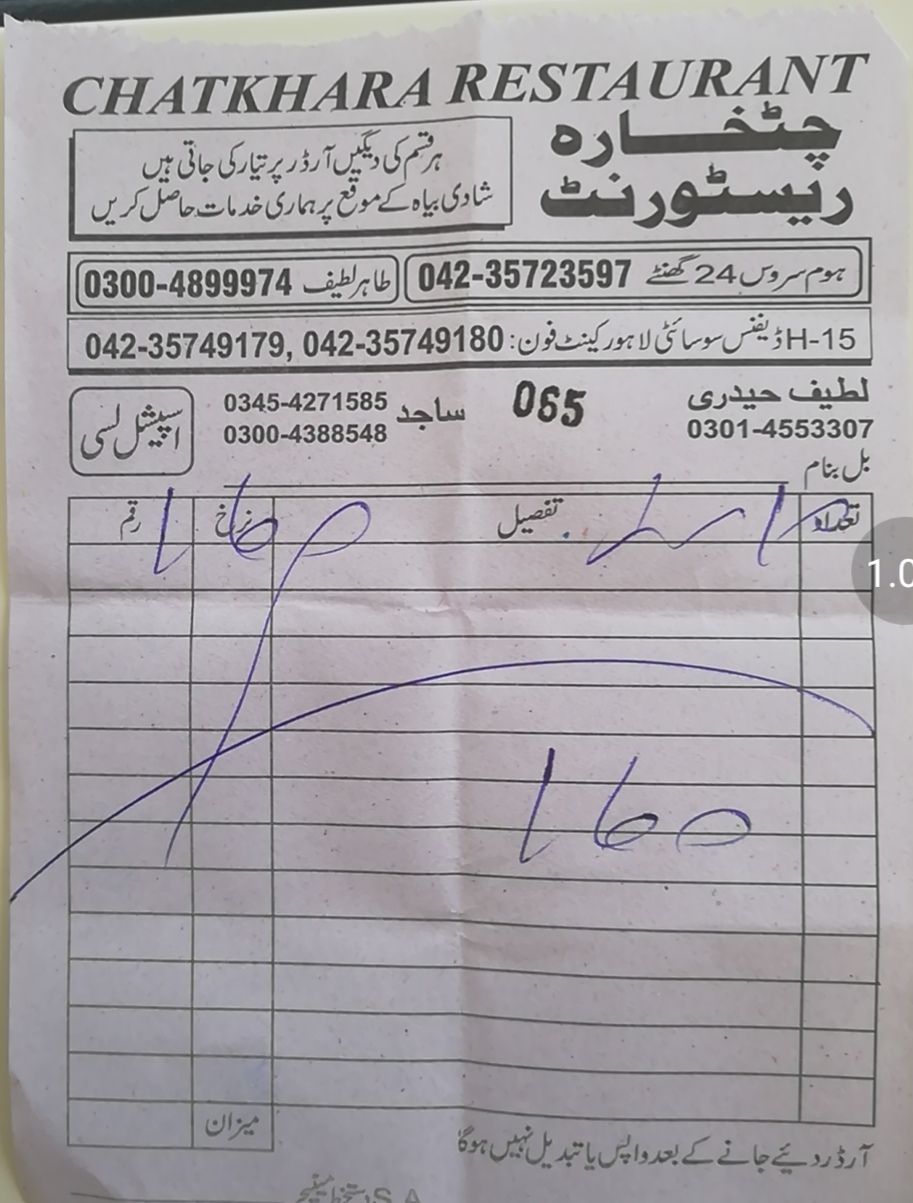 CHATKHARA RESTAURANT
چٹخارہ
ریسٹورنٹ
ہر قسم کی دیگیں آرڈر پر تیار کی جاتی ہیں
شادی بیاہ کے موقع پر ہماری خدمات حاصل کریں
ہوم سروس 24 گھنٹے 042-35723597
طاہر لطیف 0300-4899974
H-15 ڈیفنس سوسائٹی لاہور کینٹ فون: 042-35749179, 042-35749180
لطیف حیدری
0301-4553307
065
ساجد 0345-4271585
0300-4388548
اسپیشل لسی
بل بنام
تعداد تفصیل نرخ رقم
160
160
میزان
آرڈر دیئے جانے کے بعد واپس یا تبدیل نہیں ہوگا
دستخط منیجر S.A
1.0